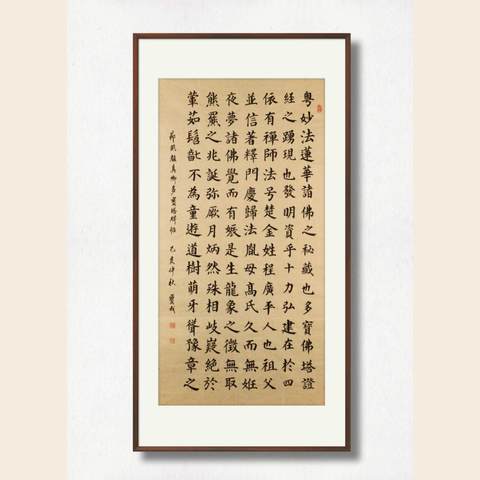 粵妙法蓮華諸佛之秘藏也多寶佛塔證
經之踴現也發明資乎十力弘建在於四
依有禪師法號楚金姓程廣平人也祖父
並信著釋門慶歸法胤母高氏久而無妊
夜夢諸佛覺而有娠是生龍象之徵無取
熊羆之兆誕彌厥月炳然殊相岐嶷絕於
葷茹髫齔不為童遊道樹萌牙聳豫章之
節臨顏真卿多寶塔碑帖 己亥仲秋